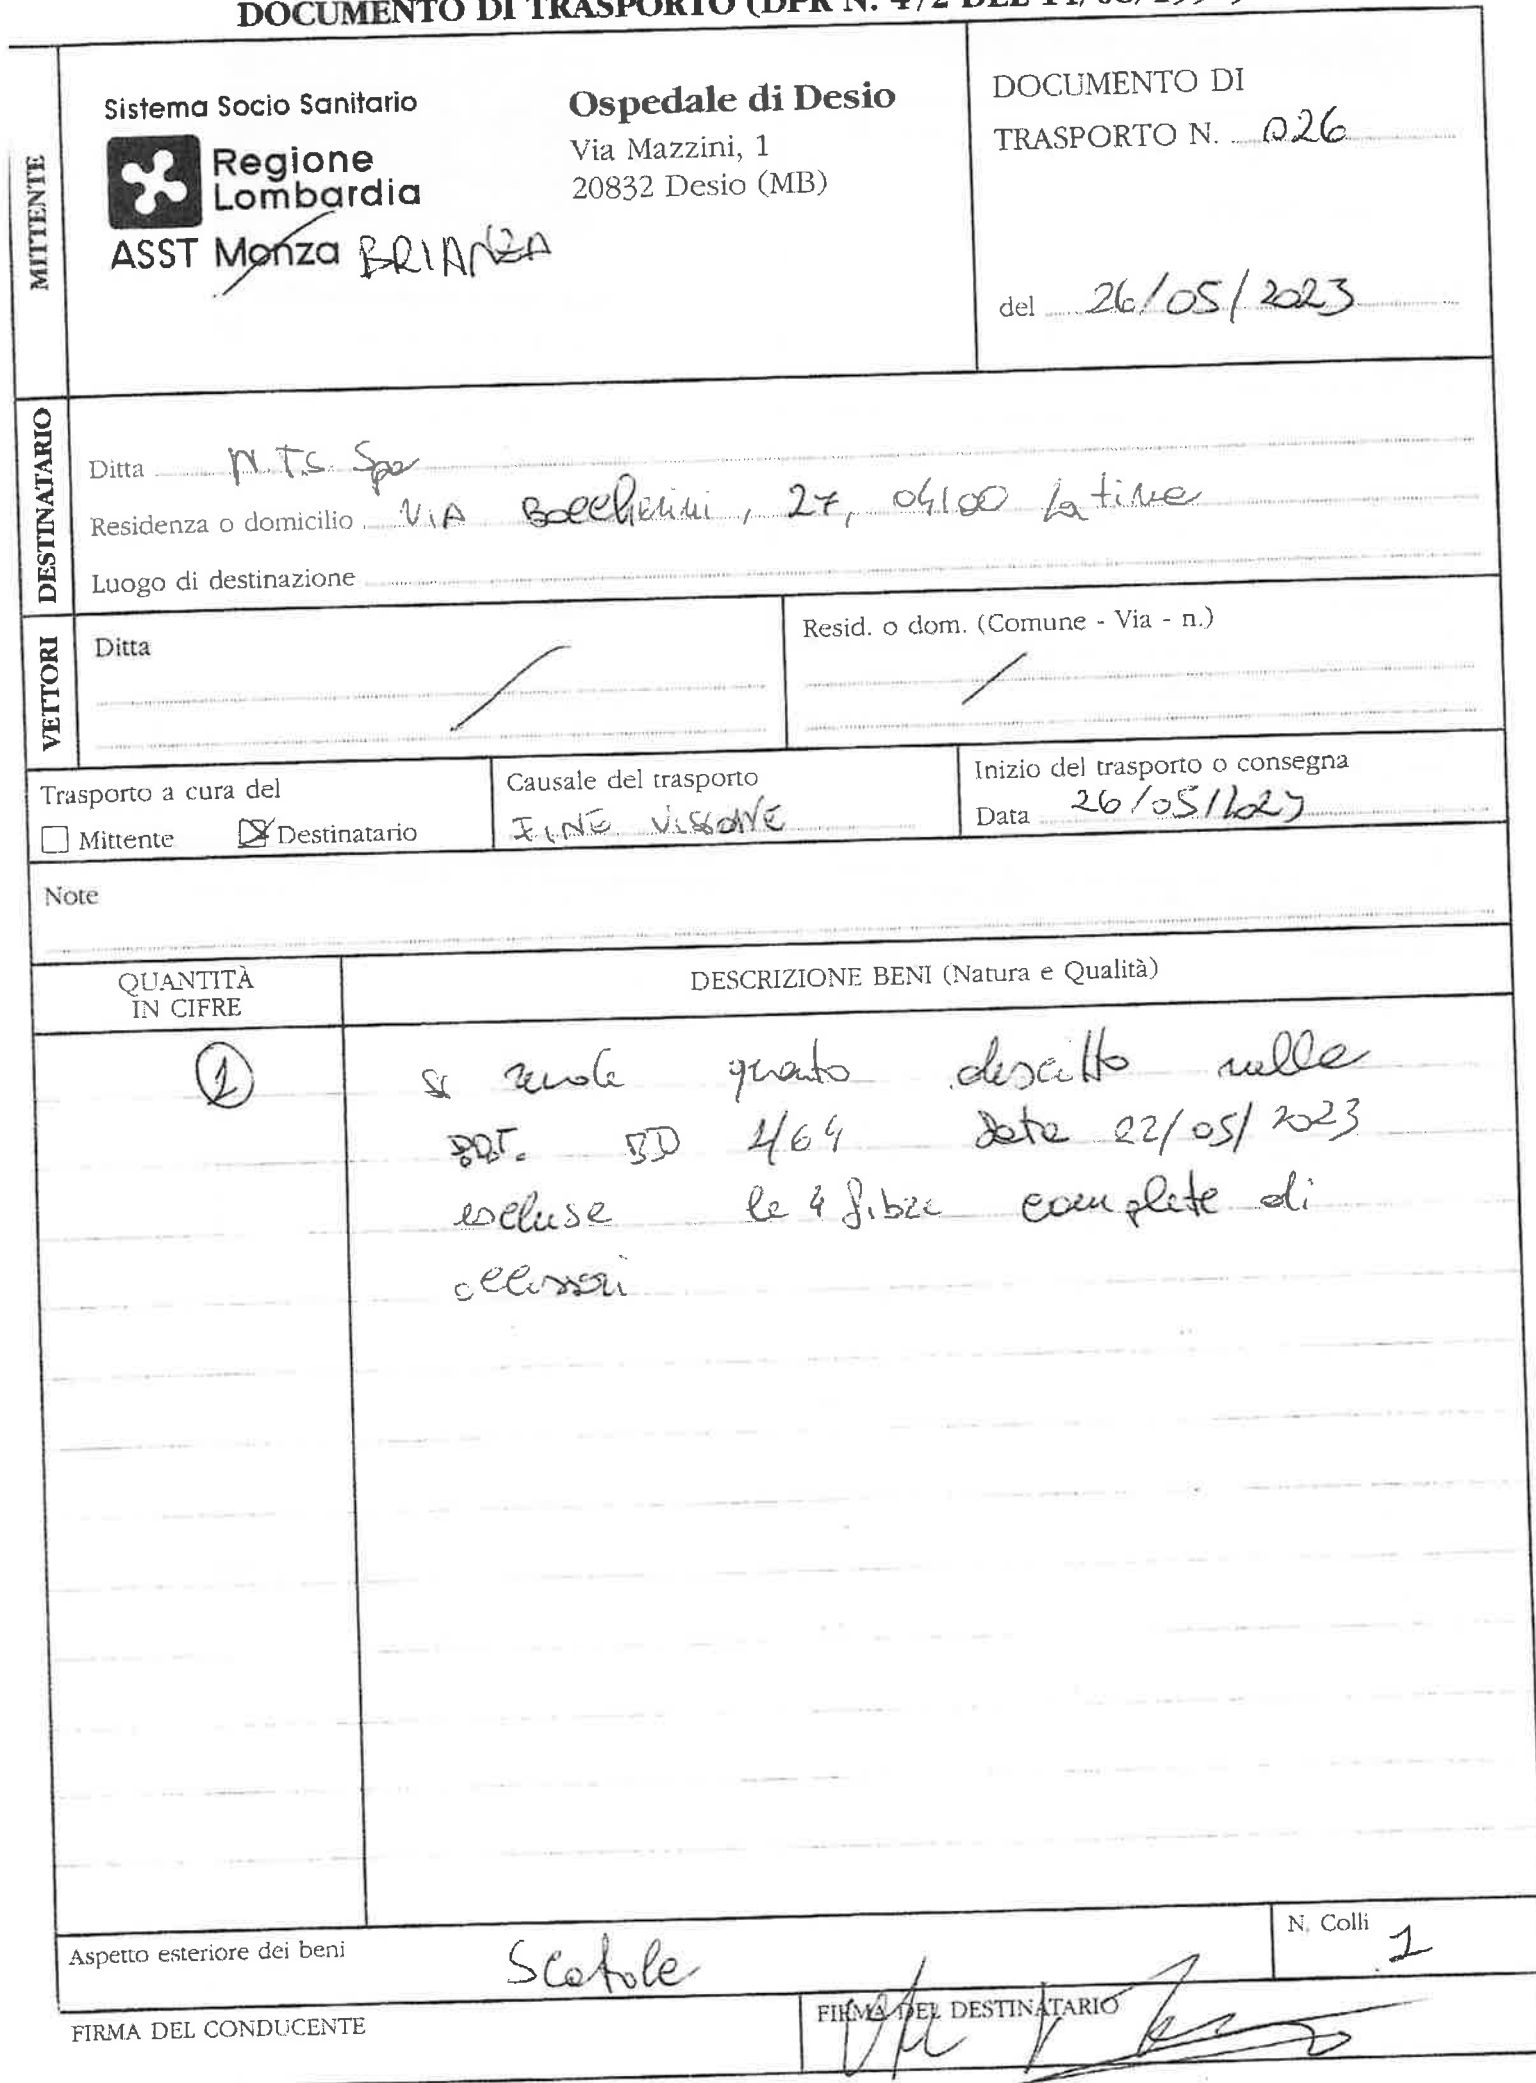 DOCUMENTO DI TRASPORTO (DPR N. 472 DEL 14/08/199
MITTENTE
Sistema Socio Sanitario
Regione
Lombardia
ASST Monza BRIANZA
Ospedale di Desio
Via Mazzini, 1
20832 Desio (MB)
DOCUMENTO DI
TRASPORTO N. 026
del 26/05/2023
DESTINATARIO
Ditta N.T.S. Spa
Residenza o domicilio VIA Boccherini, 27, 04100 Latina
Luogo di destinazione
VETTORI
Ditta /
Resid. o dom. (Comune - Via - n.)
/
Trasporto a cura del
Mittente Destinatario
Causale del trasporto
FINE VISIONE
Inizio del trasporto o consegna
Data 26/05/2023
Note
QUANTITÀ
IN CIFRE
DESCRIZIONE BENI (Natura e Qualità)
1 si rende quanto descritto nella
DDT. 1/64 Data 22/05/2023
escluse le 4 fibre complete di
accessori
Aspetto esteriore dei beni Scatole
N. Colli 1
FIRMA DEL CONDUCENTE
FIRMA DEL DESTINATARIO